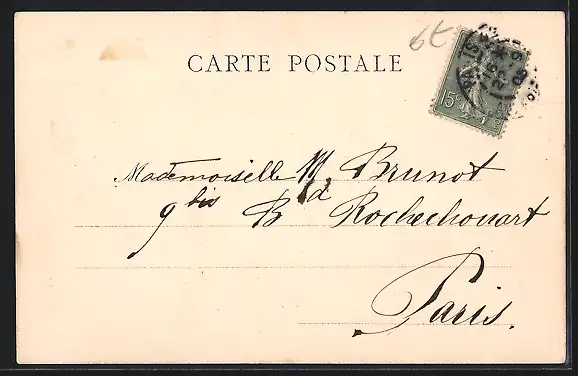 6E
CARTE POSTALE
15c
Mademoiselle M. Brunot
9 bis Bd Rochechouart
Paris.